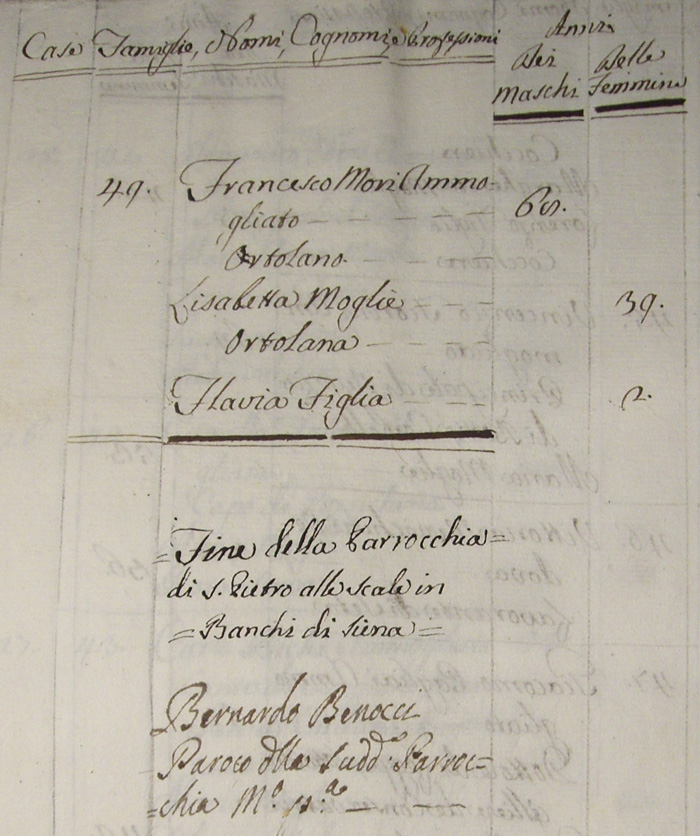 Case Famiglie, Nomi, Cognomi, e Professioni
Anni
Dei Maschi
Delle Femmine
49. Francesco Mori Ammo-
gliato
Ortolano
Lisabetta Moglie 39.
Ortolana
Flavia Figlia 2.
=Fine della Parrocchia=
di S. Pietro alle scale in
=Banchi di Siena=
Bernardo Benocci
Paroco dlla Sudd.a Parroc=
=chia M.o p.a